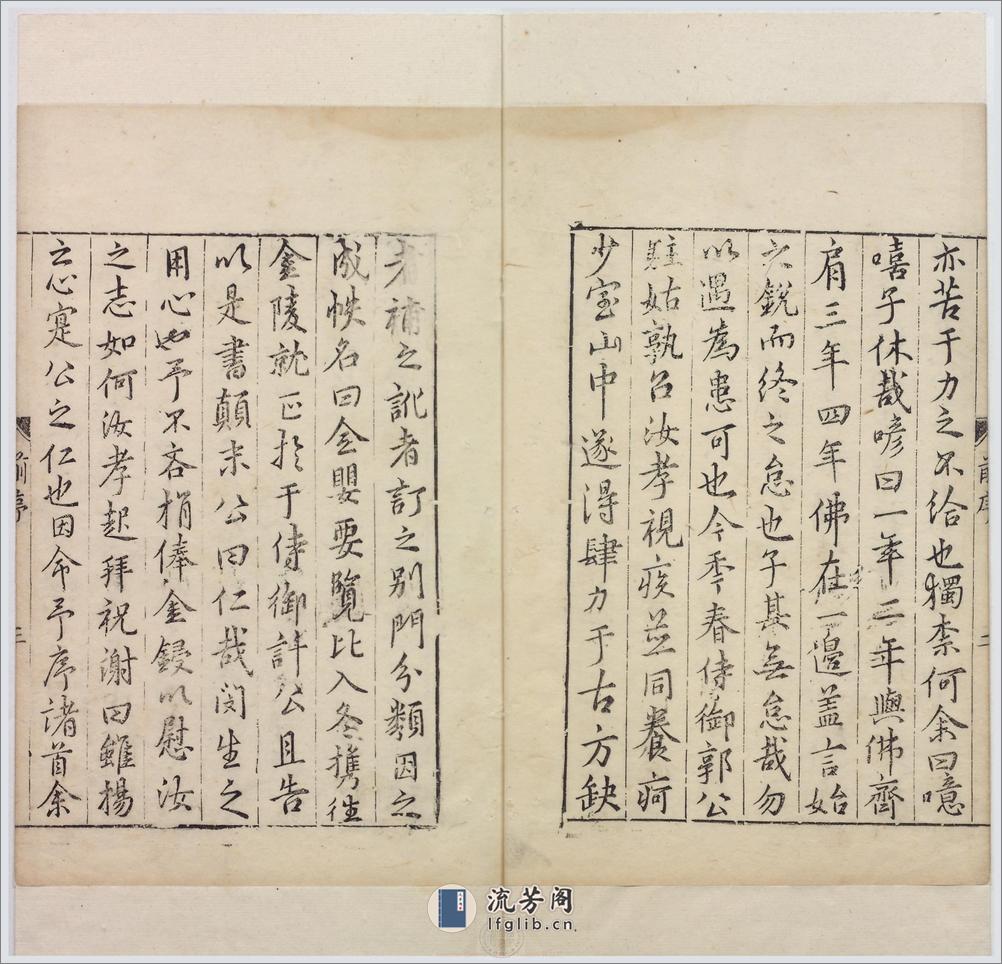 亦苦于力之不給也獨柰何余曰噫
嘻子休哉喭曰一年二年與佛齊
肩三年四年佛在一邉盖言始
之銳而終之怠也子其無怠哉勿
以遇為患可也今季春侍御郭公
駐姑孰召汝孝視疾並同養疴
少室山中遂得肆力于古方缺
前序
二
者補之訛者訂之别門分類因之
成帙名曰全嬰要覽比入冬携徃
金陵就正扵于侍御許公且告
以是書顛末公曰仁哉閔生之
用心也予不吝捐俸金鋟以慰汝
之志如何汝孝起拜祝謝曰雖揚
云心寔公之仁也因命予序諸首余
前序
三
流芳阁
lfglib.cn